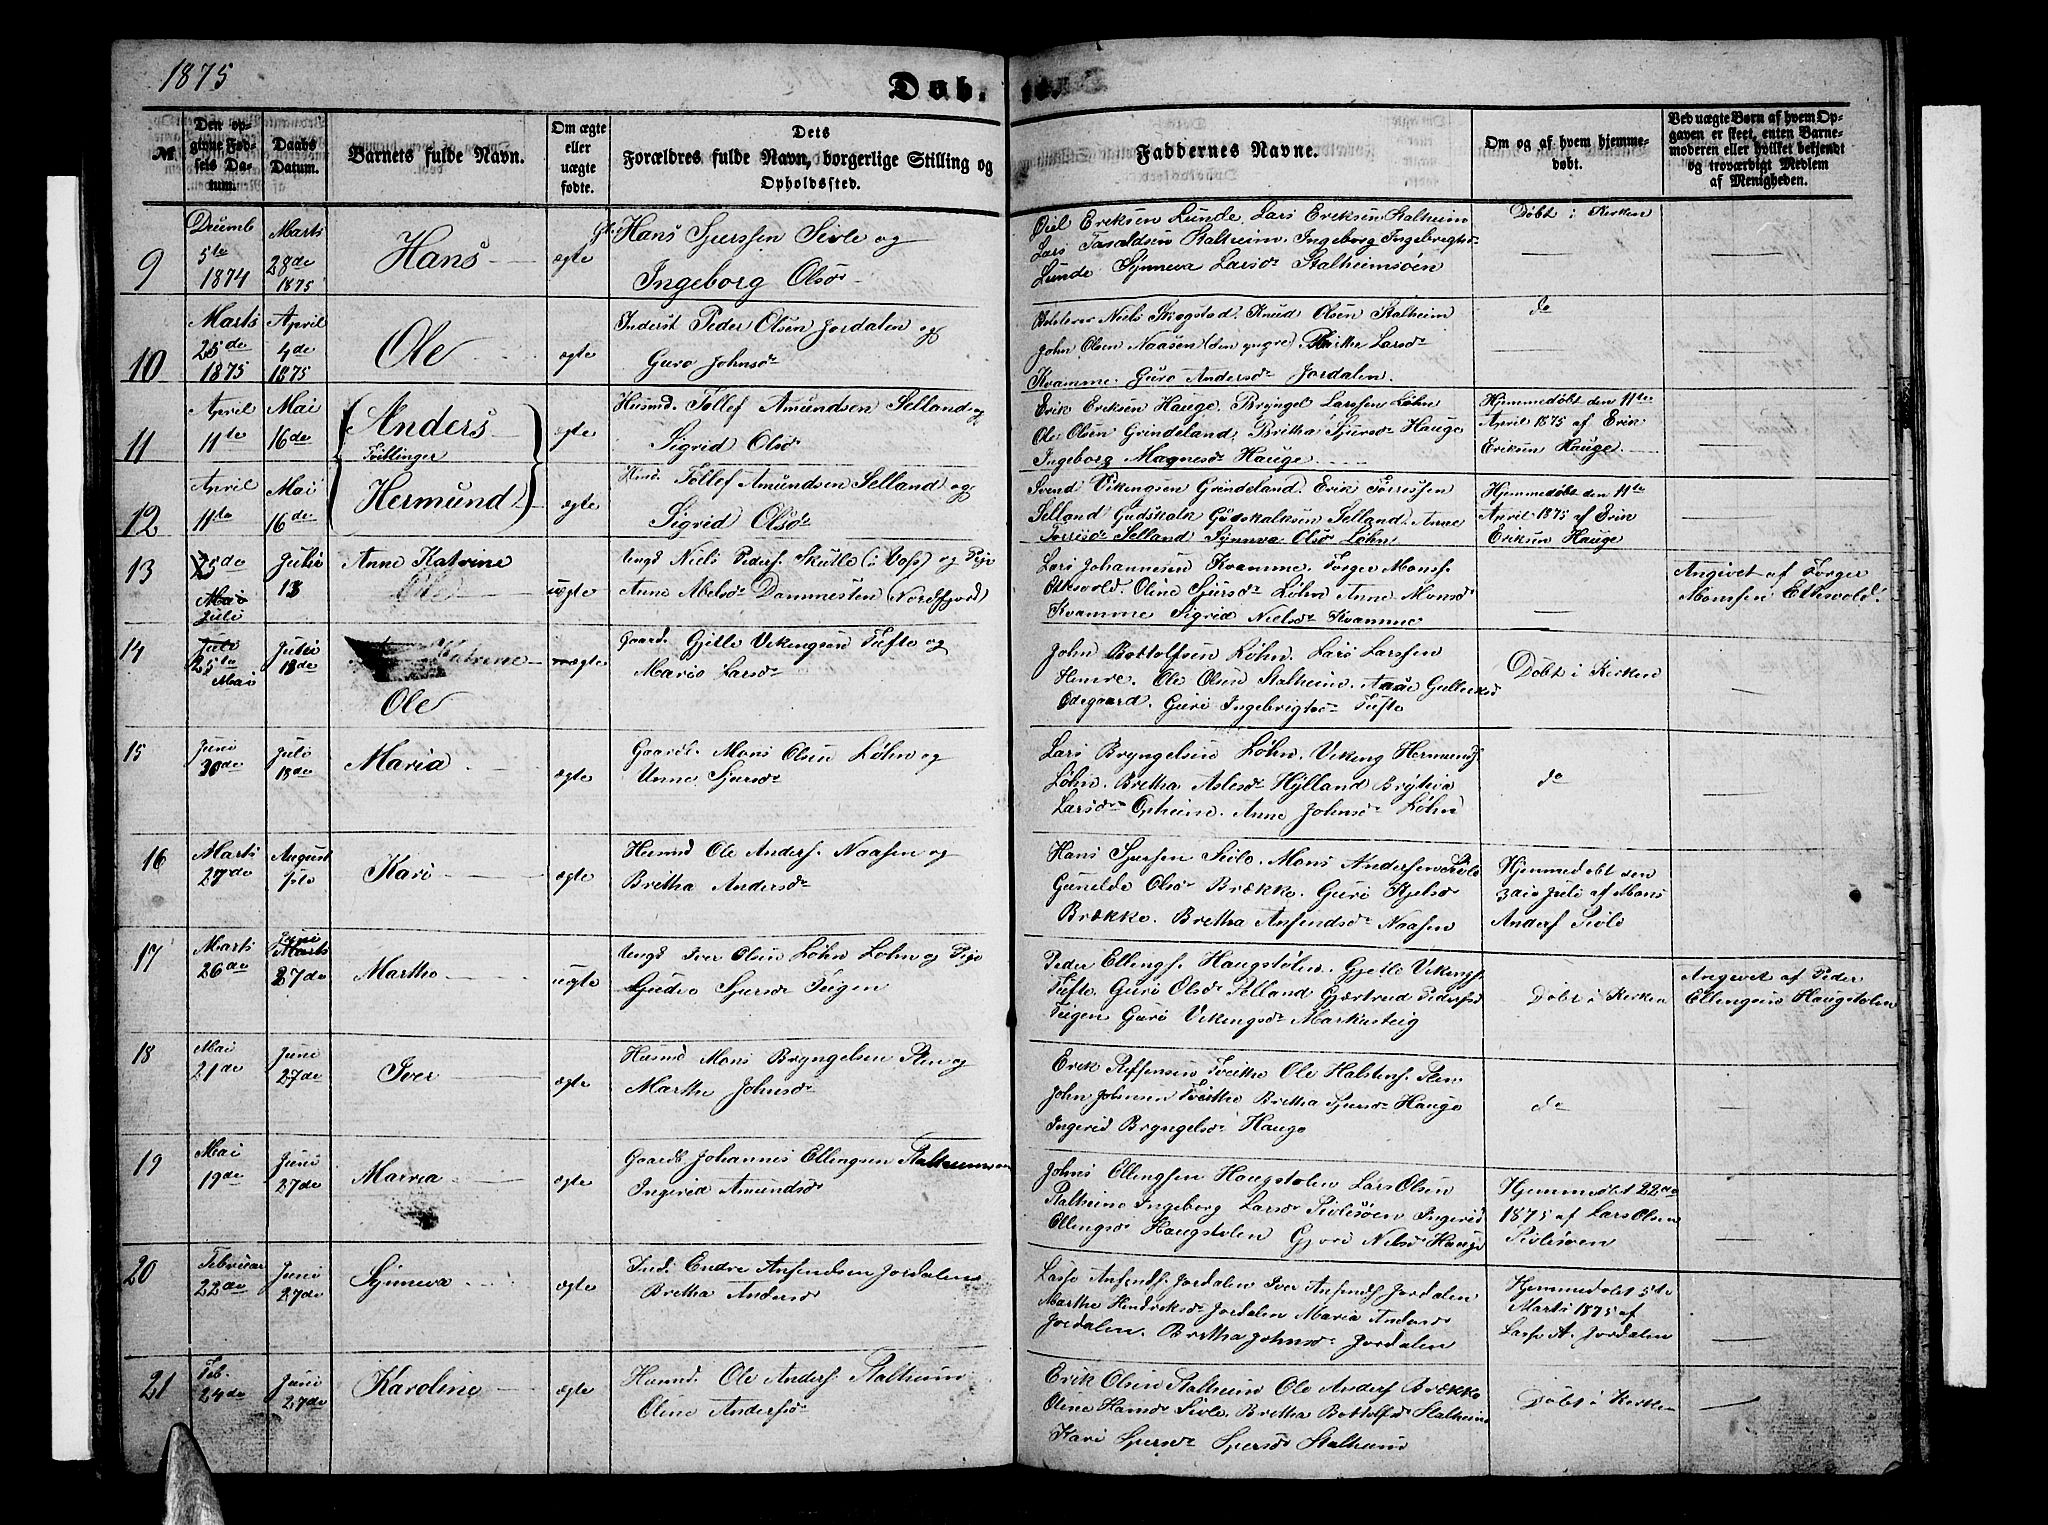 1875
Døb
Den op-
givne Fød-
sels Da-
tum.
Daabs
Datum.
Barnets fulde Navn.
Om ægte
eller
uægte
fødte.
Dets
Forældres fulde Navn, borgerlige Stilling og
Opholdssted.
Faddernes Navne.
Om og af hvem hjemme-
døbt.
Ved uægte Børn af hvem Op-
gaven er skeet, enten Barne-
moderen eller hvilket bekjendt
og troværdigt Medlem
af Menigheden.
9
5te
1874
Marts
28de
1875
Hans
ægte
Hans Sjurssen Sivle og
Ingeborg Olsdr
Eriksen Lunde, Lars Eriksen Stalheim
Lars Stalheim. Ingeborg Ingebrigtsdr
Lunde Synneva Larsdr Stalheimsøen
Døbt i Kirken
10
Marts
25de
1875
April
4de
1875
Ole
ægte
Inderst Peder Olsen Jordalen og
Guro Johnsdr
Niels Skogstad. Knud Olsen Stalheim
John Olsen Naasen (den yngre) Larsdr
Kvamme. Guro Andersdr Jordalen.
do
11
April
11te
Mai
16de
Anders
Tvillinger
ægte
Husmd. Tollef Amundsen Selland og
Sigrid Olsdr
Erik Eriksen Hauge. Bryngel Larssen Løhn
Ole Olsen Grindeland, Britha Sjursdr Hauge
Ingeborg Magnesdr Hauge.
Hjemmedøbt den 11te
April 1875 af Erik
Eriksen Hauge.
12
April
11te
Mai
16de
Hermund
ægte
Husmd. Tollef Amundsen Selland og
Sigrid Olsdr
Svend Vikingsen Grindeland. Erik Torressen
Selland Gudskalk Gudskalksen Selland. Anne
Torrisdr Selland Synneva Olsdr Løhn
Hjemmedøbt den 11te
April 1875 af Erik
Eriksen Hauge
13
25de
Mai
Juli
Juli
13
Anne Katrine
Ole
uægte
Ungd Niels Peders. Skutle (i Voss) og Pige
Anne Abelsdr Dommesten (Nordfjord)
Lars Johannesen Kvamme. Torger Monss.
Olsdr Oline Sjursdr Løhn Anne Monsdr
Kvamme Sigrid Nielsdr Kvamme
Angivet af Torger
Monssen
14
Juli
25te
Mai
Juli
18de
Katrine
Ole
ægte
Gaard. Gjetle Vikingsen Tufte og
Mario Larsdr
John Bottolfsen Løhn. Lars Larssen
Hemre. Ole Olsen Stalheim. Aase Gulleiksdr
Ødegaard. Guri Ingebrigtsdr Tufte
Døbt i Kirken
15
Juni
30de
Juli
18de
Maria
ægte
Gaardb. Mons Olsen Løhn og
Unne Sjursdr
Lars Bryngelsen Løhn. Viking Hermunds.
Løhn. Bretha Aslesdr Hylland Brytiva
Larsdr Opheim. Anne Johnsdr Løhn
do
16
Marts
27de
August
1ste
Kari
ægte
Husmd Ole Anders. Naasen og
Bretha Andersdr
Hans Sjurssen Sivle. Mons Anderssen Sivle
Gunelde Olsdr Brække. Guri Kjelsdr
Brække. Bretha Anfendsdr Naasen
Hjemmedøbt den
3die Juli af Mons
Anders Sivle
17
Marts
26de
Juni
Marts
27de
Martha
uægte
Ungd Iver Olsen Løhn Løhn og Pige
Gudve Sjursdr Teigen
Peder Ellings. Haugstølen. Gjetle Vikings.
Tufte. Guri Olsdr Selland Gjertrud Pedersdr
Teigen Guri Vikingsdr Markusteig
Døbt i Kirken
Angivet af Peder
Ellingsen Haugstølen
18
Mai
21de
Juni
27de
Iver
ægte
Husmd Mons Bryngelsen Sten og
Martha Johnsdr
Erik Steffensen Tveithe Ole Halstens. Sten
John Johnsen Tveithe Bretha Sjursdr Hauge
Ingerid Bryngelsdr Hauge
do
19
Mai
19de
Juni
27de
Maria
ægte
Gaardb Johannes Ellingsen
Ingerid Amundsdr
Johns Ellingsen Haugstølen Lars Olsen
Stalheim Ingeborg Larsdr Sivlesøen Ingerid
Ellingsdr Haugstølen Gjøri Nilsdr Hauge
Hjemmedøbt 22de
1875 af Lars Olsen
Sivlesøen
20
Februar
22de
Juni
27de
Synneva
ægte
Ind. Endre Anfendsen Jordalen
Bretha Andersdr
Lasse Anfends. Jordalen Iver Anfends. Jordalen
Martha Hendriksdr Jordalen Maria Andersdr
Jordalen. Bretha Johnsdr Jordalen
Hjemmedøbt 5te
Marts 1875 af
Lasse A. Jordalen
21
Feb.
24de
Juni
27de
Karoline
ægte
Husmd. Ole Anders. Stalheim
Oline Andersdr
Erik Olsen Stalheim Ole Anders. Brække
Oline Hansdr Sivle. Bretha Bottolfsdr Stalheim
Kari Sjursdr Sjursdr Stalheim
Døbt i Kirken